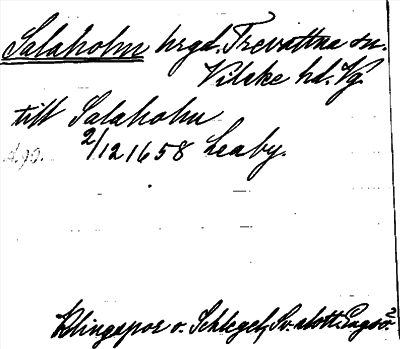 Salaholm hrgd. Trevattna sn.
Vilske hd. Vg.
till Salaholm
2/12 1658 Leaby.
Klingspor o. Schlegel, Sv. slott. Engsö